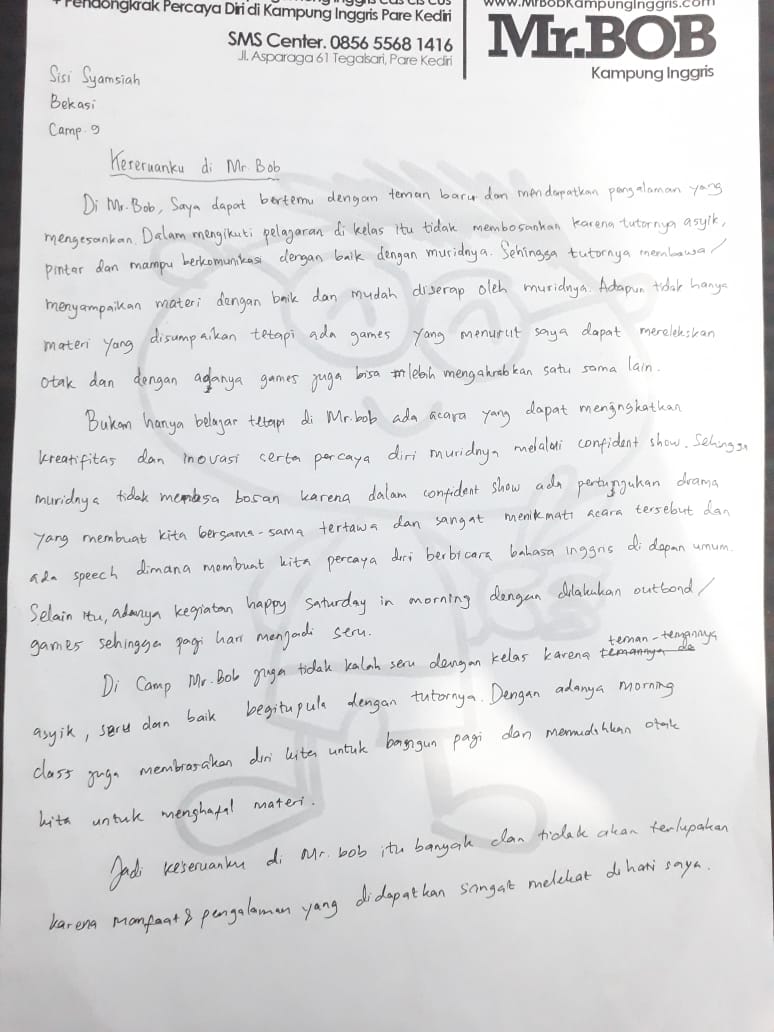 + Pendongkrak Percaya Diri di Kampung Inggris Pare Kediri
www.MrBobKampungInggris.com
SMS Center. 0856 5568 1416
Jl. Asparaga 61 Tegalsari, Pare Kediri
Mr.BOB
Kampung Inggris
Sisi Syamsiah
Bekasi
Camp. 9
Keseruanku di Mr Bob
Di Mr. Bob, Saya dapat bertemu dengan teman baru dan mendapatkan pengalaman yang
mengesankan. Dalam mengikuti pelajaran di kelas itu tidak membosankan karena tutornya asyik,
pintar dan mampu berkomunikasi dengan baik dengan muridnya. Sehingga tutornya membawa/
menyampaikan materi dengan baik dan mudah diserap oleh muridnya. Adapun tidak hanya
materi yang disampaikan tetapi ada games yang menurut saya dapat merelekskan
otak dan dengan adanya games juga bisa lebih mengakrabkan satu sama lain.
Bukan hanya belajar tetapi di Mr.bob ada acara yang dapat meningkatkan
kreatifitas dan inovasi serta percaya diri muridnya melalui confident show. Sehingga
muridnya tidak merasa bosan karena dalam confident show ada pertunjukan drama
yang membuat kita bersama-sama tertawa dan sangat menikmati acara tersebut dan
ada speech dimana membuat kita percaya diri berbicara bahasa inggris di depan umum.
Selain itu, adanya kegiatan happy saturday in morning dengan dilakukan outbond/
games sehingga pagi hari menjadi seru.
Di Camp Mr. Bob juga tidak kalah seru dengan kelas karena teman-temannya
asyik, seru dan baik begitupula dengan tutornya. Dengan adanya morning
class juga membiasakan diri kita untuk bangun pagi dan memudahkan otak
kita untuk menghafal materi.
Jadi keseruanku di Mr. bob itu banyak dan tidak akan terlupakan
karena manfaat & pengalaman yang didapatkan sangat melekat di hati saya.